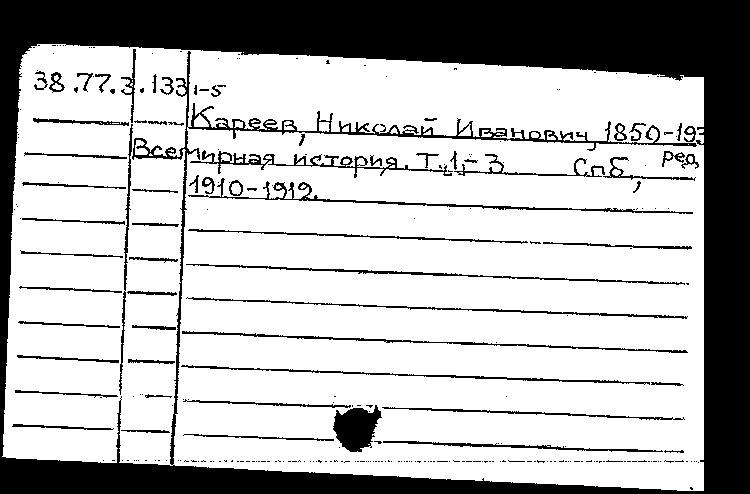 38.77.3.133 1-5
Кареев, Николай Иванович, 1850-193
ред.
Всемирная история. Т. 1-3 Спб.,
1910-1912.